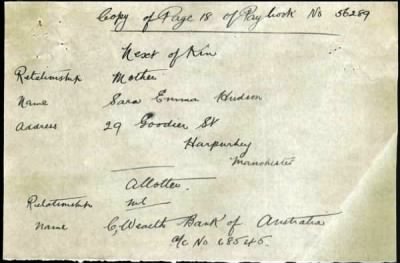 Copy of Page 18 of Paybook No 56289
Next of Kin
Relationship Mother
Name Sara Emma Hudson
Address 29 Goodier St
Harpurhey
Manchester
Allottee.
Relationship nil
Name C,Wealth Bank of Australia
a/c No 68545.